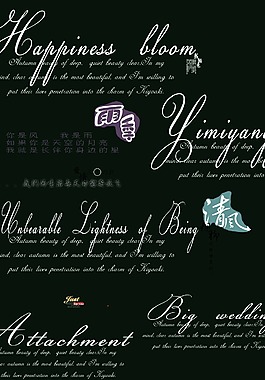 Happiness bloom
Autumn beauty of deep, quiet beauty clear.In my
mind, clear autumn is the most beautiful, and I'm willing to
put their lives penetration into the charm of Kiyoaki.
雨
Yimiyang
Autumn beauty of deep, quiet
mind, clear autumn is the most
put their lives penetration into
你是风 我是雨
如果你是天空的月亮
我就是长伴你身边的星
清风
Unbearable Lightness of Being
Autumn beauty of deep, quiet beauty clear.In my
mind, clear autumn is the most beautiful, and I'm willing to
put their lives penetration into the charm of Kiyoaki.
Just
Attachment
Autumn beauty of deep, quiet beauty clear.In my
mind, clear autumn is the most beautiful, and I'm willing to
put their lives penetration into the charm of Kiyoaki.
Big wedding
Autumn beauty of deep, quiet
mind, clear autumn is the most
put their lives penetration into